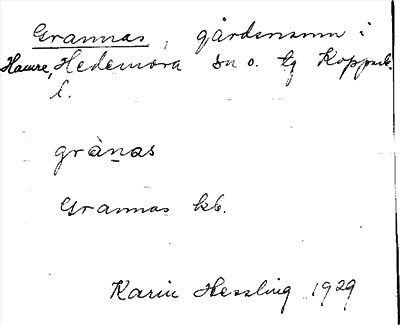 Grannas, gårdsnamn i
Hamre, Hedemora sn o. tg Kopparb.
l.
grànas
Grannas kb.
Karin Hessling 1929